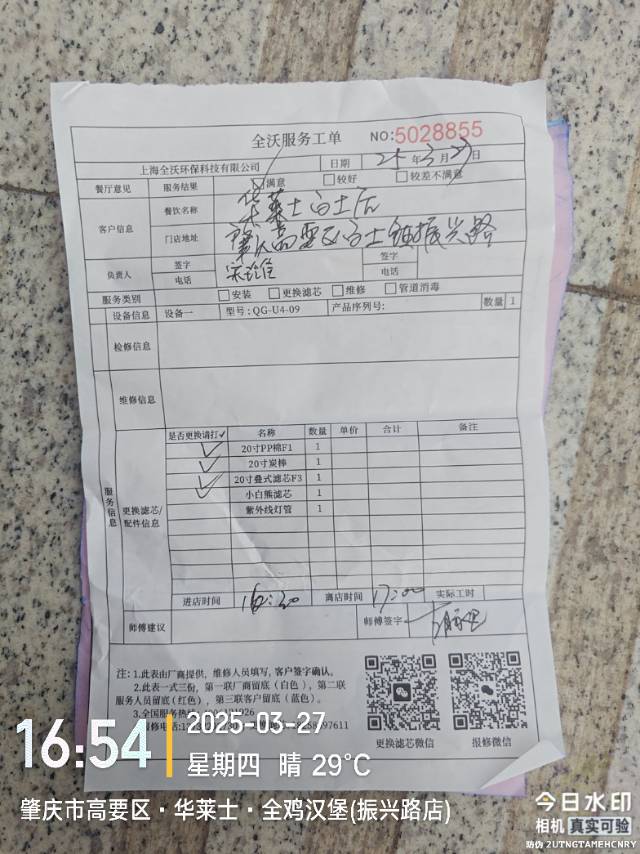 全沃服务工单 NO:5028855
上海全沃环保科技有限公司 日期 25年3月27日
餐厅意见 服务结果 满意 较好 较差不满意
客户信息 餐饮名称 华莱士白土店
门店地址 肇庆高要区白土镇振兴路
负责人 签字 签字
电话 电话
服务类别 安装 更换滤芯 维修 管道消毒
设备信息 设备一 型号:QG-U4-09 产品序列号: 数量 1
检修信息
维修信息
服务信息
更换滤芯/配件信息
是否更换请打✓ 名称 数量 单价 合计 备注
✓ 20寸PP棉F1 1
✓ 20寸炭棒 1
✓ 20寸叠式滤芯F3 1
小白熊滤芯 1
紫外线灯管 1
进店时间 16:20 离店时间 17:00 实际工时
师傅建议 师傅签字
注:1.此表由厂商提供,维修人员填写,客户签字确认。
2.此表一式三份,第一联厂商留底(白色),第二联
服务人员留底(红色),第三联客户留底(蓝色)。
3.全国服务热
报修电话:
更换滤芯微信 报修微信
16:54 2025-03-27
星期四 晴 29℃
肇庆市高要区·华莱士·全鸡汉堡(振兴路店)
今日水印
相机 真实可验
防伪 2UTNGTAMEHCNRY